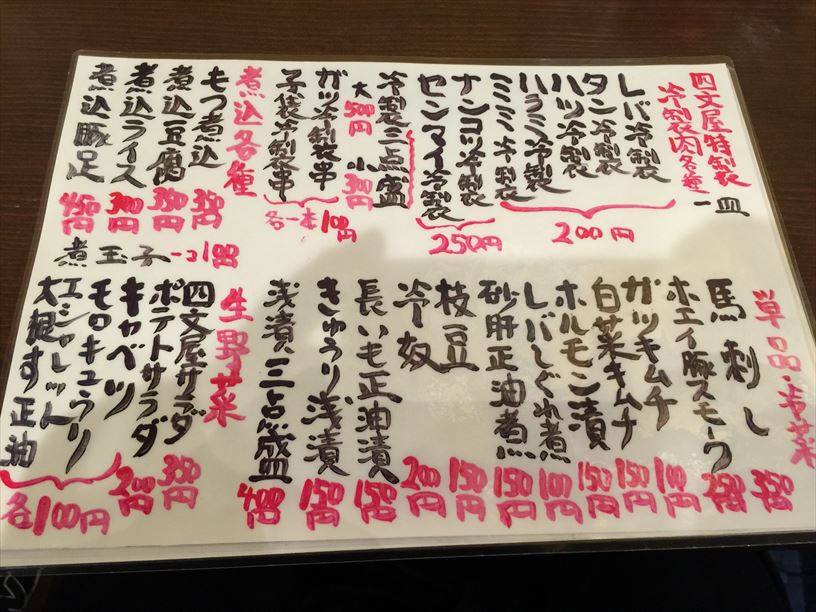 四文屋特製
冷製肉各種 一皿
レバ冷製
タン冷製
ハツ冷製
ハラミ冷製
ミミ冷製
200円
ナンコツ冷製
センマイ冷製
250円
冷製三点盛
大500円 小300円
ガツ冷製串
子袋冷製串
各一本100円
煮込各種
もつ煮込 350円
煮込豆腐 350円
煮込ライス 300円
煮込豚足 450円
煮玉子一コ100円
単品・お菜
馬刺し 350円
ホエイ豚スモーク 250円
ガツキムチ
白菜キムチ 150円
ホルモン漬 150円
レバしぐれ煮 100円
砂肝正油煮 150円
枝豆 150円
冷奴 200円
長いも正油漬 150円
きゅうり浅漬 150円
浅漬三点盛 400円
生野菜
四文屋サラダ 350円
ポテトサラダ
キャベツ 200円
モロキュウリ
エシャレット
大根す正油
各100円